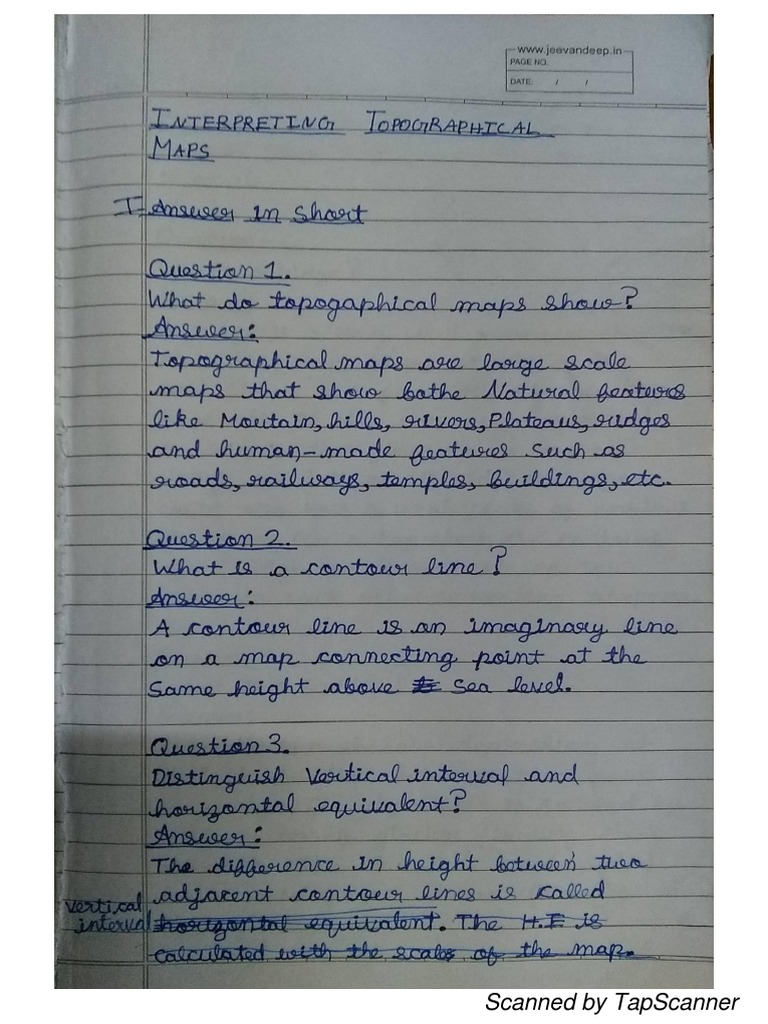 www.jeevandeep.in
PAGE NO.
DATE: / /
INTERPRETING TOPOGRAPHICAL
MAPS
I Answer in short
Question 1.
What do topogaphical maps show?
Answer:
Topographical maps are large scale
maps that show bothe Natural features
like Moutain, hills, rivers, Plateaus, ridges
and human-made features such as
roads, railways, temples, buildings, etc.
Question 2.
What is a contour line?
Answer:
A contour line is an imaginary line
on a map connecting point at the
same height above sea level.
Question 3.
Distinguish vertical interval and
horizontal equivalent?
Answer:
The difference in height between two
adjacent contour lines is called
vertical
interval horizontal equivalent. The H.E is
calculated with the scale of the map.
Scanned by TapScanner